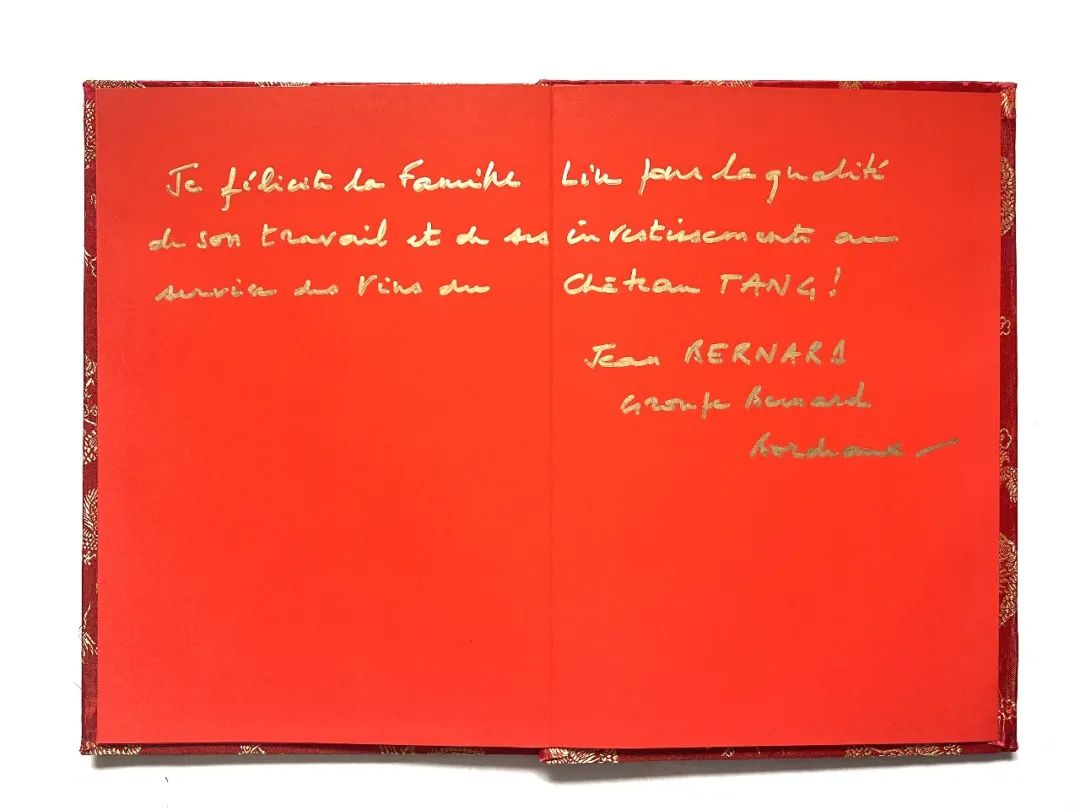 Je félicite la Famille Liu pour la qualité
de son travail et de ses investissements au
service des Vins du Château TANG !
Jean BERNARD
Groupe Bernard
Bordeaux